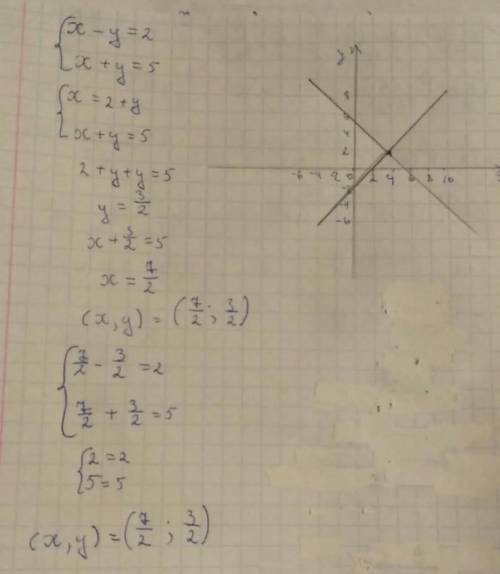 {x - y = 2
x + y = 5
{x = 2 + y
x + y = 5
2 + y + y = 5
y = 3/2
x + 3/2 = 5
x = 7/2
(x, y) = (7/2 ; 3/2)
{7/2 - 3/2 = 2
7/2 + 3/2 = 5
{2 = 2
5 = 5
(x, y) = (7/2 ; 3/2)
y
8
6
4
2
-6 -4 -2 0 2 4 6 8 10
-4
-6